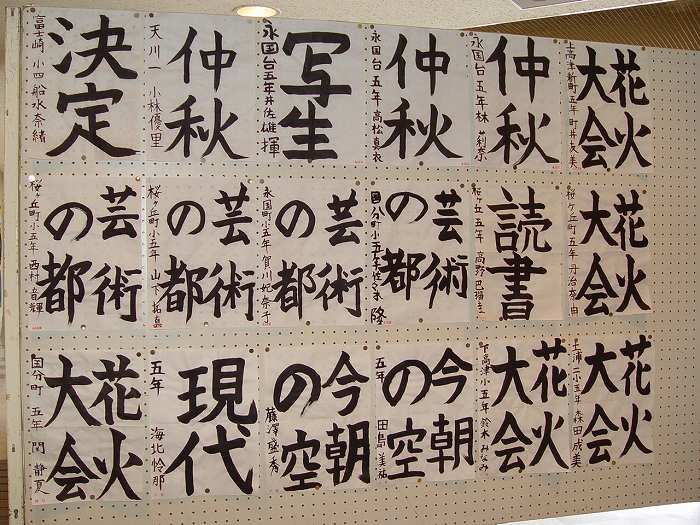 決定
富士崎 小四 船水奈緒
仲秋
天川一 小林優里
写生
永国台五年 井佐雄揮
仲秋
永国台 五年 高松真衣
仲秋
永国台 五年 林 莉奈
花火
大会
上高津新町五年 町井友美
芸術
の都
桜ヶ丘町小五年 西村音輝
芸術
の都
桜ヶ丘町小五年 山下拓真
芸術
の都
永国町小五年 賀川妃奈子
芸術
の都
国分町小五年 佐々木 隆
読書
桜ヶ丘五年 高野
花火
大会
桜ヶ丘町五年 丹治
花火
大会
国分町 五年 関 静夏
現代
五年 海北怜那
今朝
の空
藤澤盛秀
今朝
の空
五年 田島美祐
花火
大会
下高津小五年 鈴木みなみ
花火
大会
土浦二小五年 森田成美